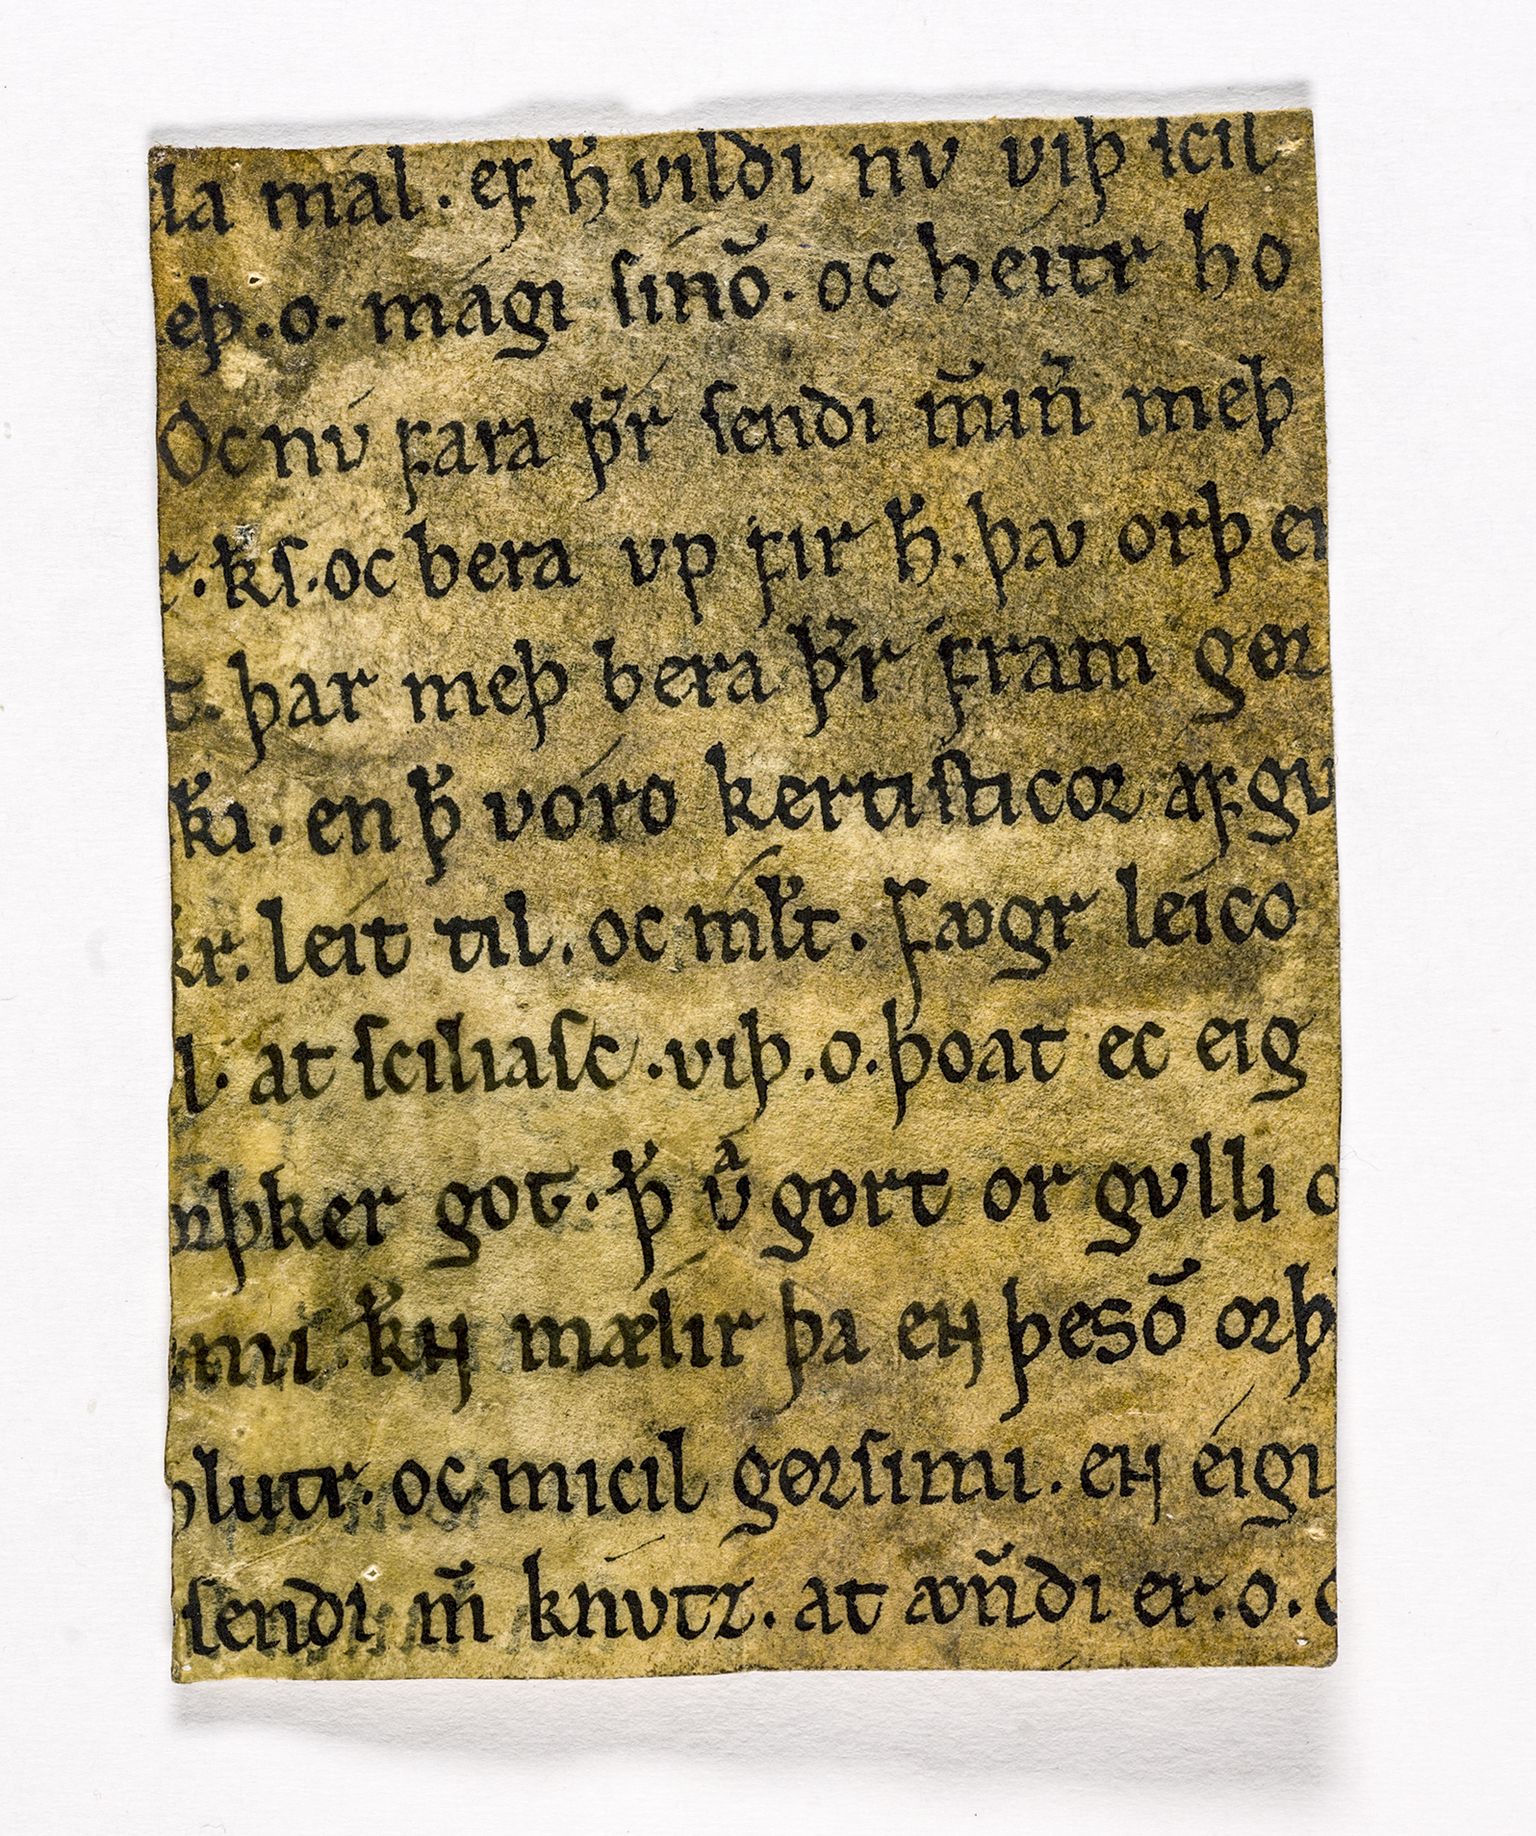 la mál. eꝼ h̅ vilꝺi nv viþ ſcil
eþ.o. mági ſino̅. oc heítr ho
Oc nv́ ꝼara þr̅ ſenꝺi m̅in̅ meþ
r. kſ̅.oc bera vp ꝼir h̅. þꜹ orþ er
t. þar meþ bera þr̅ ꝼram gøꝛ
kı̅. en þ̅ vóro kertiſticoꝛ aꝼ gv
kr̅. leít til. oc ml̅t. ꝼꜹgr leíco
l. at ſciliaſc. viþ.o.þoat ec eig
ꝛþker got. þ̅ vͣ gørt or gvlli o
mi kꞪ̅ mælir þa eꞪ þeso̅ oꝛþ
hlutr. oc micil gøꝛſimi. eꞪ éigi
ſenꝺi m̅ knv́tꝛ. at ꜹn̅ꝺi er.o.